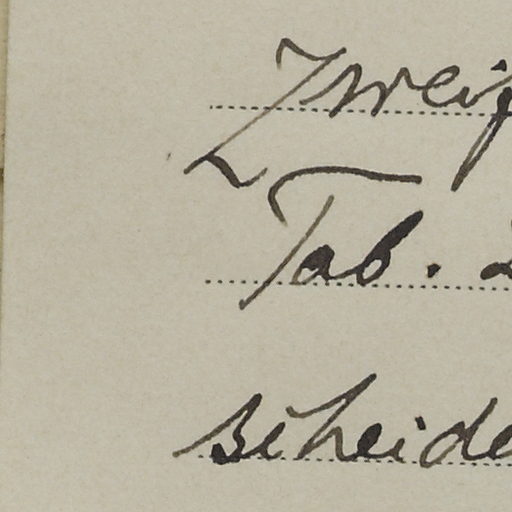 Zweif
Tab. 2
scheide